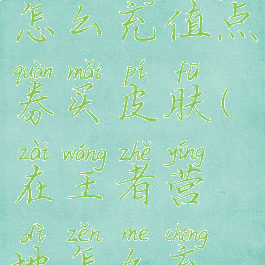 怎么充值点
quàn mǎi pí fū
券买皮肤(
zài wáng zhě yíng
在王者营
dì zěn me chōng
地怎么充